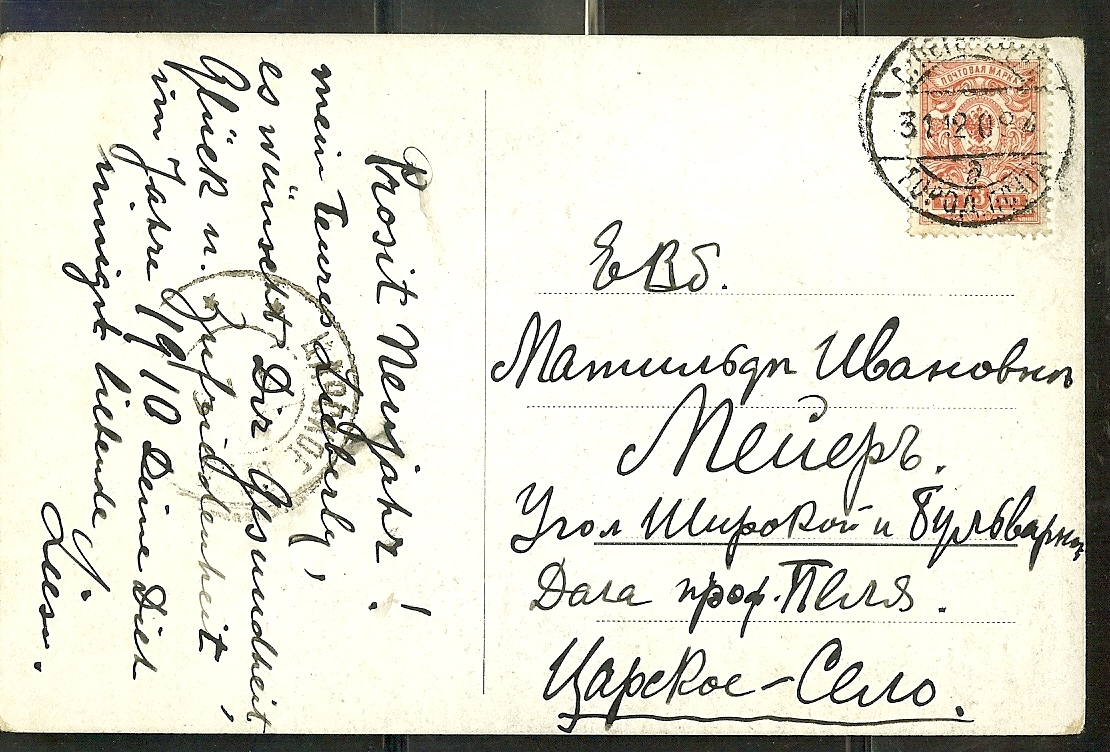 Prosit Neujahr!
mein Teures Lieberly,
es wünscht Dir Gesundheit,
Glück u. Zufriedenheit
im Jahre 1910 Deine Dich
innigst liebende
ПОЧТОВАЯ МАРКА
ГОРОД. ПОЧТА
ЕВб.
Матильдѣ Ивановнѣ
Мейеръ.
Угол Широкой и Бульварной
Дача проф. Пеля.
Царское-Село.